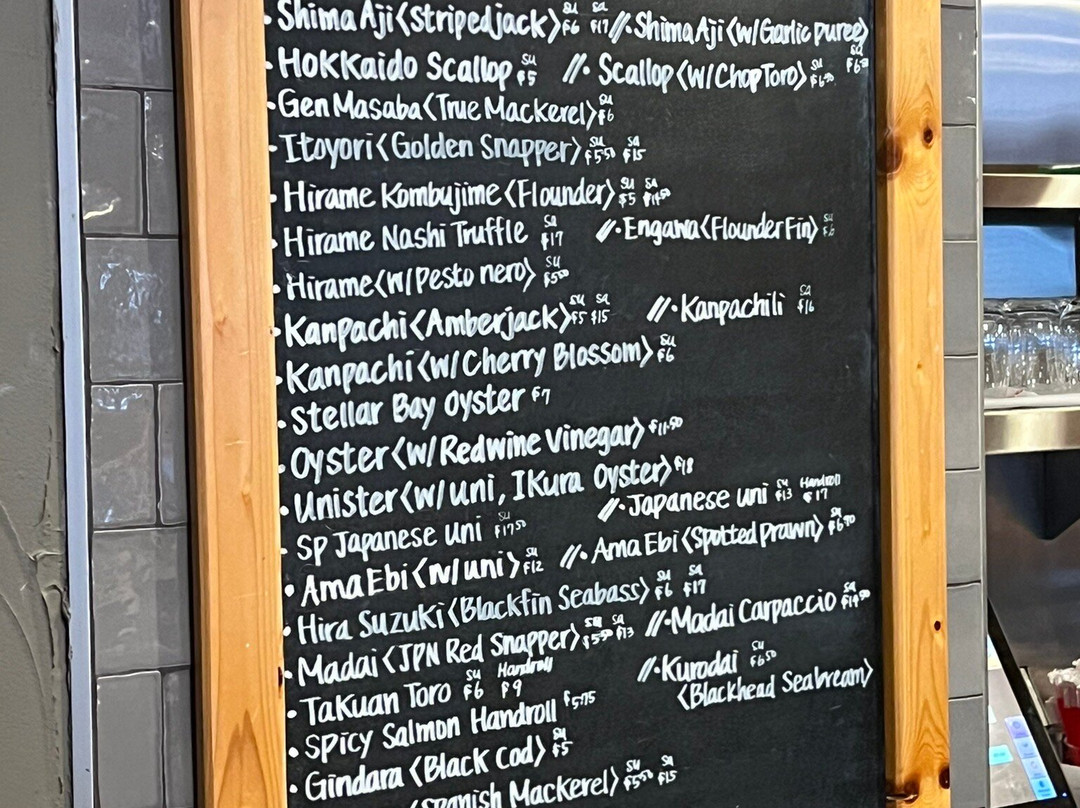 • Shima Aji <Stripedjack> su $6 sa $17 //• Shima Aji <w/Garlic puree> su $6.50
• Hokkaido Scallop su $5 //• Scallop <w/Chop Toro> su $6.50
• Gen Masaba <True Mackerel> su $6
• Itoyori <Golden Snapper> su $5.50 sa $15
• Hirame Kombujime <Flounder> su $5 sa $14.50
• Hirame Nashi Truffle sa $17 //• Engawa <Flounder Fin> su $6
• Hirame <w/Pesto nero> su $5.50
• Kanpachi <Amberjack> su $5 sa $15 //• Kanpachili sa $16
• Kanpachi <w/Cherry Blossom> su $6
• Stellar Bay Oyster $7
• Oyster <w/Redwine Vinegar> $11.50
• Unister <w/uni, Ikura Oyster> $18
• Sp Japanese Uni su $17.50 //• Japanese uni su $13 Handroll $17
• Ama Ebi <w/uni> su $12 //• Ama Ebi <Spotted prawn> su $6.90
• Hira Suzuki <Blackfin Seabass> su $6 sa $17
• Madai <JPN Red Snapper> su $5.50 sa $13 //• Madai Carpaccio sa $14.50
• Takuan Toro su $6 Handroll $9 //• Kurodai su $6.50
<Blackhead Seabream>
• Spicy Salmon Handroll $5.75
• Gindara <Black Cod> su $5
<Spanish Mackerel> su $5.50 sa $15